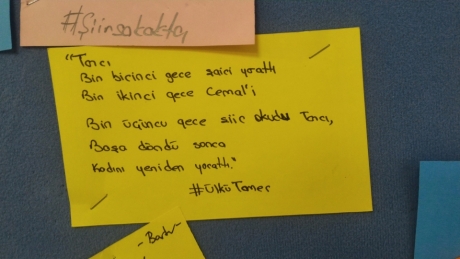 #Şiirsokakta
"Tanrı
Bin birinci gece şairi yarattı
Bin ikinci gece Cemal'i
Bin üçüncü gece şiir okudu Tanrı,
Başa döndü sonra
Kadını yeniden yarattı."
#ÜlküTamer